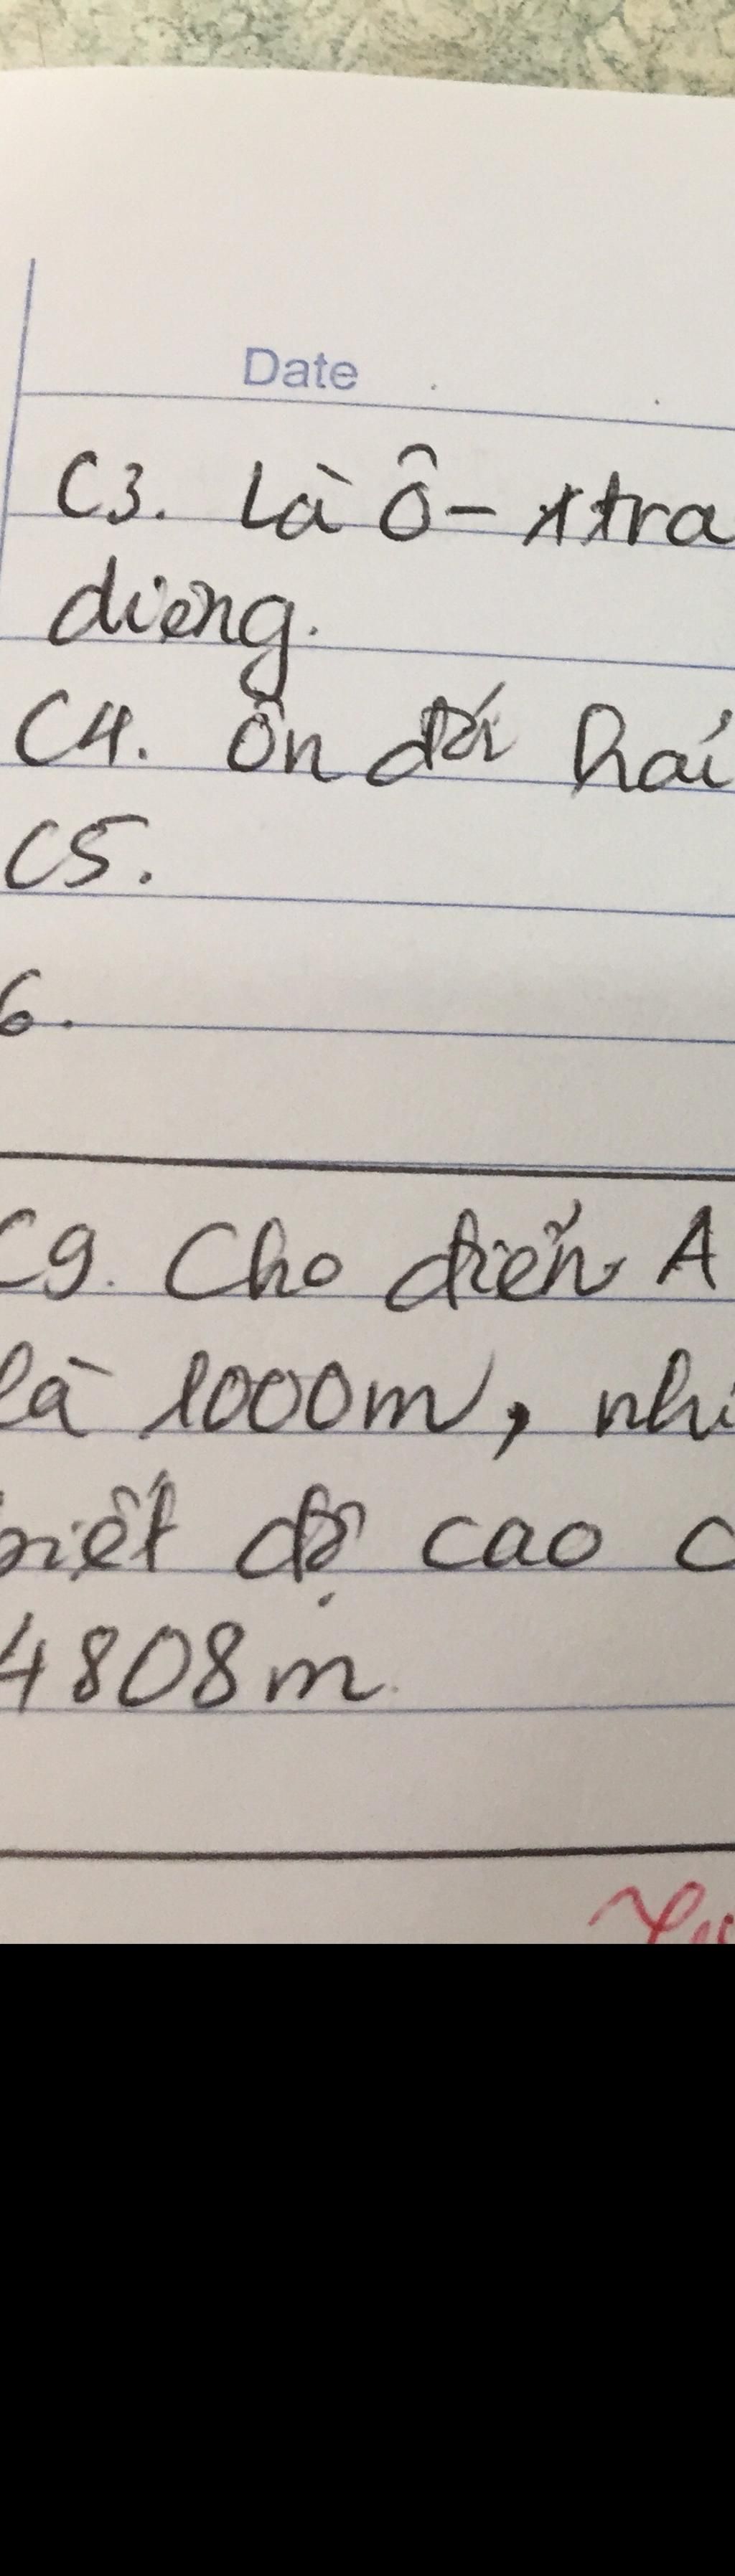 Date
C3. Là Ô - xtra
dương.
C4. Ôn đới hải
C5.
6.
C9. Cho điểm A
là 1000m, nhi
biết độ cao c
4808m